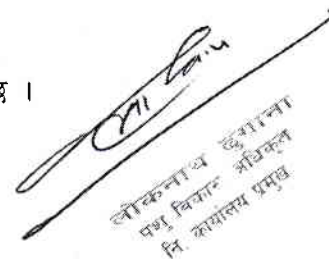 छ ।
लोकनाथ ढुंगाना
पशु विकास अधिकृत
नि. कार्यालय प्रमुख